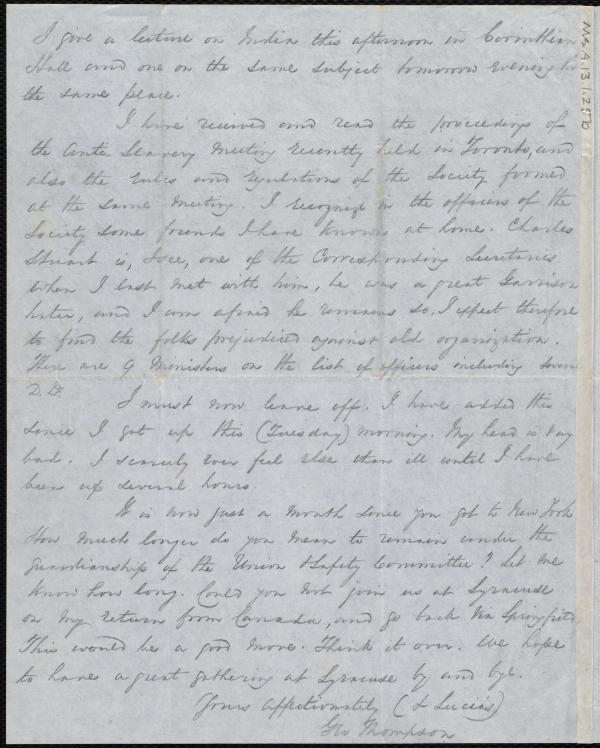 I give a lecture on India this afternoon in Corinthian
Hall and one on the same subject tomorrow evening in
the same place.
I have received and read the proceedings of
the Anti Slavery Meeting recently held in Toronto, and
also the rules and regulations of the Society formed
at the same meeting. I recognize in the officers of the
Society some friends I have known at home. Charles
Stuart is, I see, one of the Corresponding Secretaries
When I last met with him, he was a great Garrison
hater, and I am afraid he remains so. I expect therefore
to find the folks prejudiced against old organization.
There are 9 Ministers on the list of officers including some
D.D.
I must now leave off. I have added this
since I got up this (Tuesday) morning. My head is very
bad. I scarcely ever feel else than ill until I have
been up several hours.
It is now just a month since you got to New York
How much longer do you mean to remain under the
guardianship of the Union & Safety Committee? Let me
know how long. Could you not join us at Syracuse
on my return from Canada, and go back via Springfield
This would be a good move. Think it over. We hope
to have a great gathering at Syracuse by and bye.
Yours affectionately (& Lucius)
Geo Thompson
MS.A.1.3